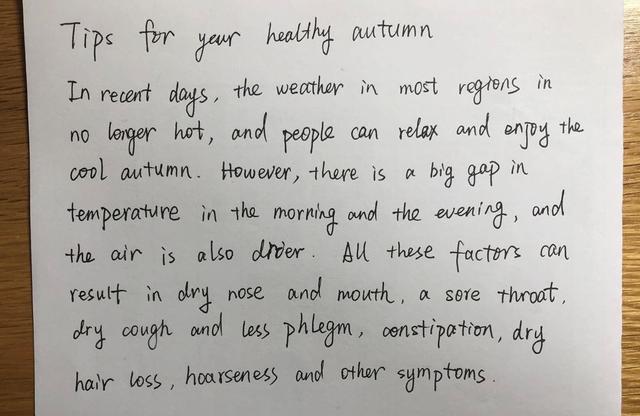 Tips for your healthy autumn
In recent days, the weather in most regions in
no longer hot, and people can relax and enjoy the
cool autumn. However, there is a big gap in
temperature in the morning and the evening, and
the air is also drier. All these factors can
result in dry nose and mouth, a sore throat,
dry cough and less phlegm, constipation, dry
hair loss, hoarseness and other symptoms.